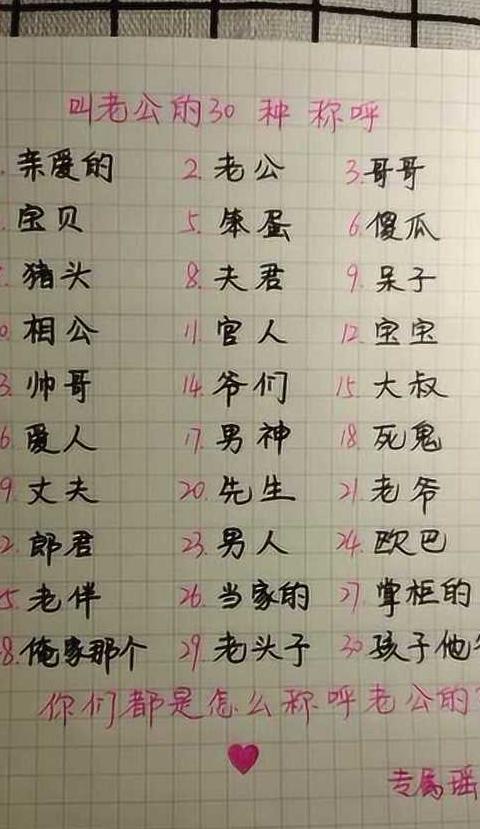 叫老公的30种称呼
亲爱的 2.老公 3.哥哥
宝贝 5.笨蛋 6.傻瓜
猪头 8.夫君 9.呆子
0.相公 11.官人 12.宝宝
3.帅哥 14.爷们 15.大叔
6.爱人 17.男神 18.死鬼
9.丈夫 20.先生 21.老爷
2.郎君 23.男人 24.欧巴
5.老伴 26.当家的 27.掌柜的
8.俺家那个 29.老头子 30.孩子他
你们都是怎么称呼老公的?
专属瑶